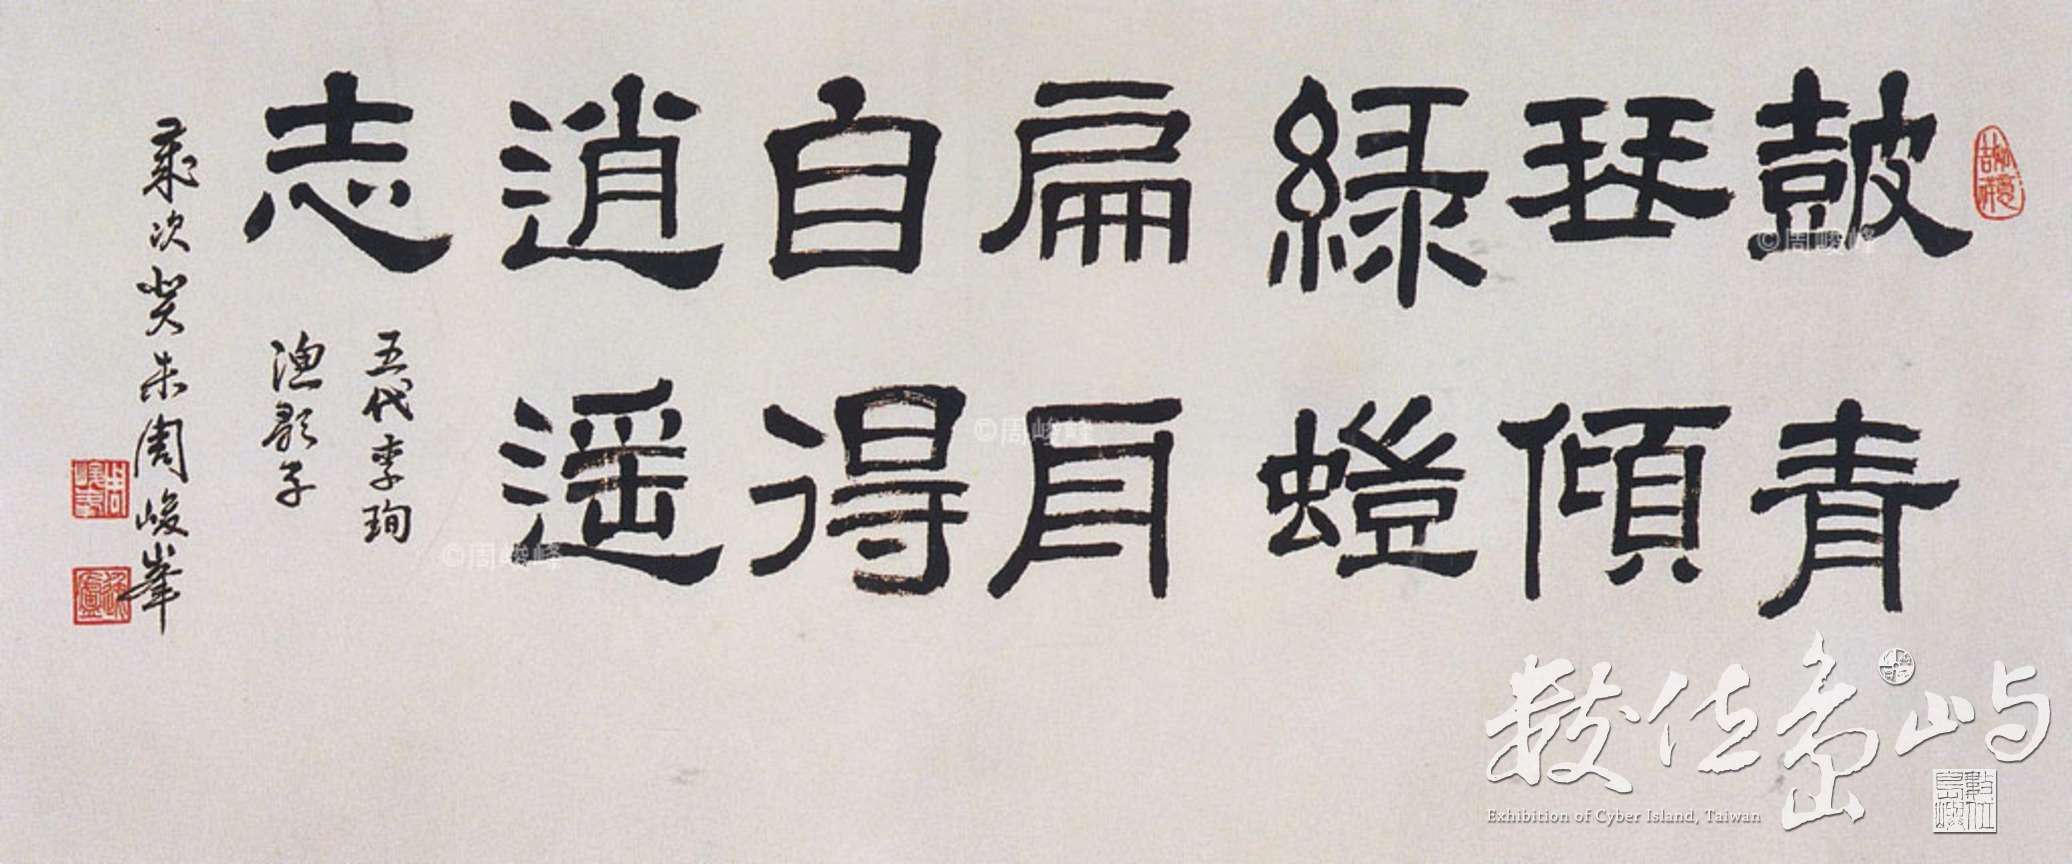 鼓青
琴傾
綠螘
扁舟
自得
逍遙
志
五代李珣
漁歌子
歲次癸未周峻峯
©周峻峰
©周峻峰
©周峻峰
數位島嶼
Exhibition of Cyber Island, Taiwan